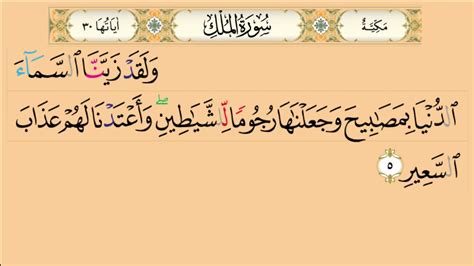 مَكِّيَّةٌ سُورَةُ الْمُلْكِ آيَاتُهَا ٣٠
وَلَقَدْ زَيَّنَّا ٱلسَّمَآءَ
ٱلدُّنْيَا بِمَصَٰبِيحَ وَجَعَلْنَٰهَا رُجُومًا لِّلشَّيَٰطِينِ ۖ وَأَعْتَدْنَا لَهُمْ عَذَابَ
ٱلسَّعِيرِ ٥